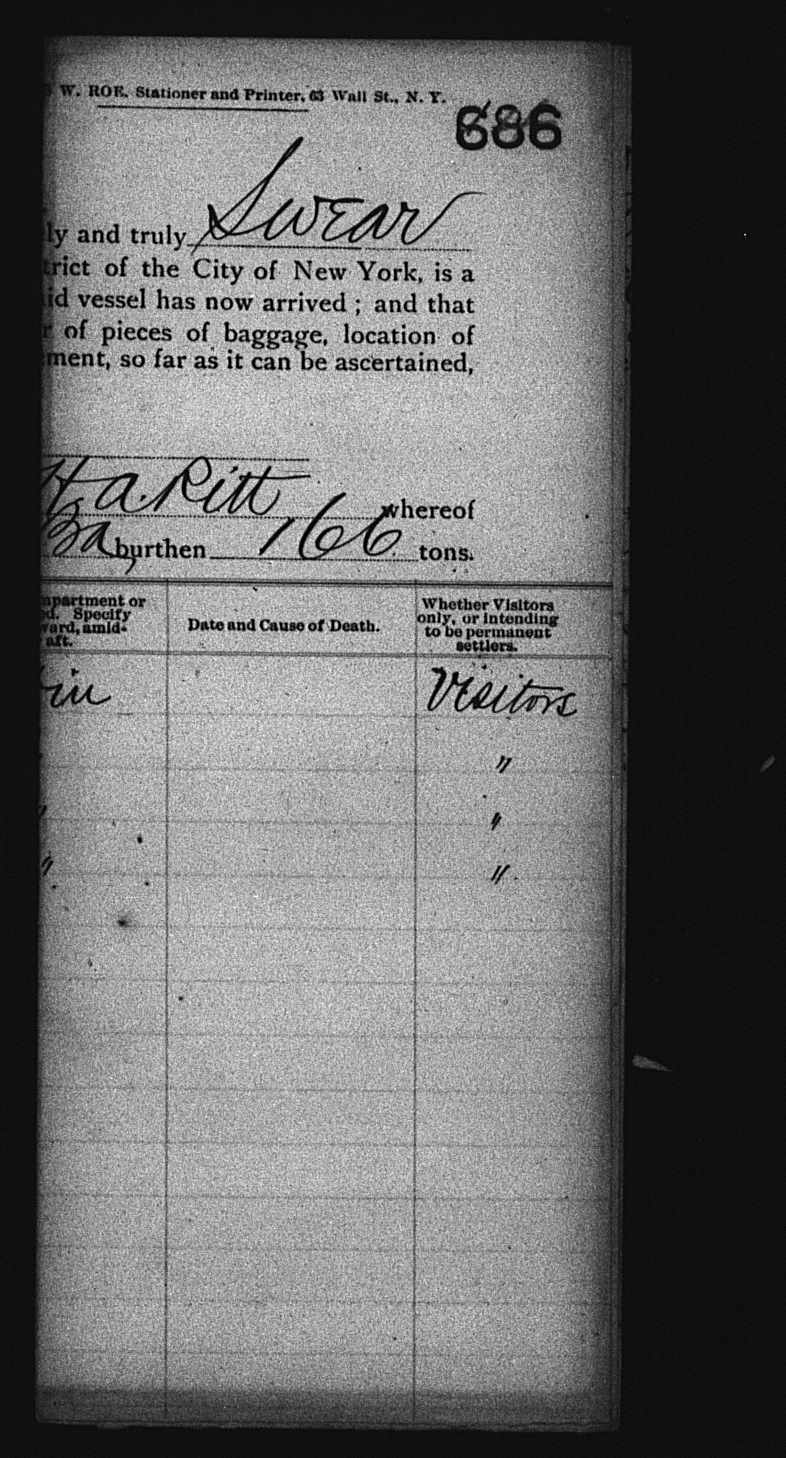 W. ROE, Stationer and Printer, 63 Wall St., N. Y.
686
ly and truly Swear
trict of the City of New York, is a
id vessel has now arrived ; and that
r of pieces of baggage, location of
ment, so far as it can be ascertained,
H. A. Pitt whereof
burthen 166 tons.
mpartment or
ed. Specify
ward, amid-
aft.
Date and Cause of Death.
Whether Visitors
only, or intending
to be permanent
settlers.
bin Visitors
"
" "
" "